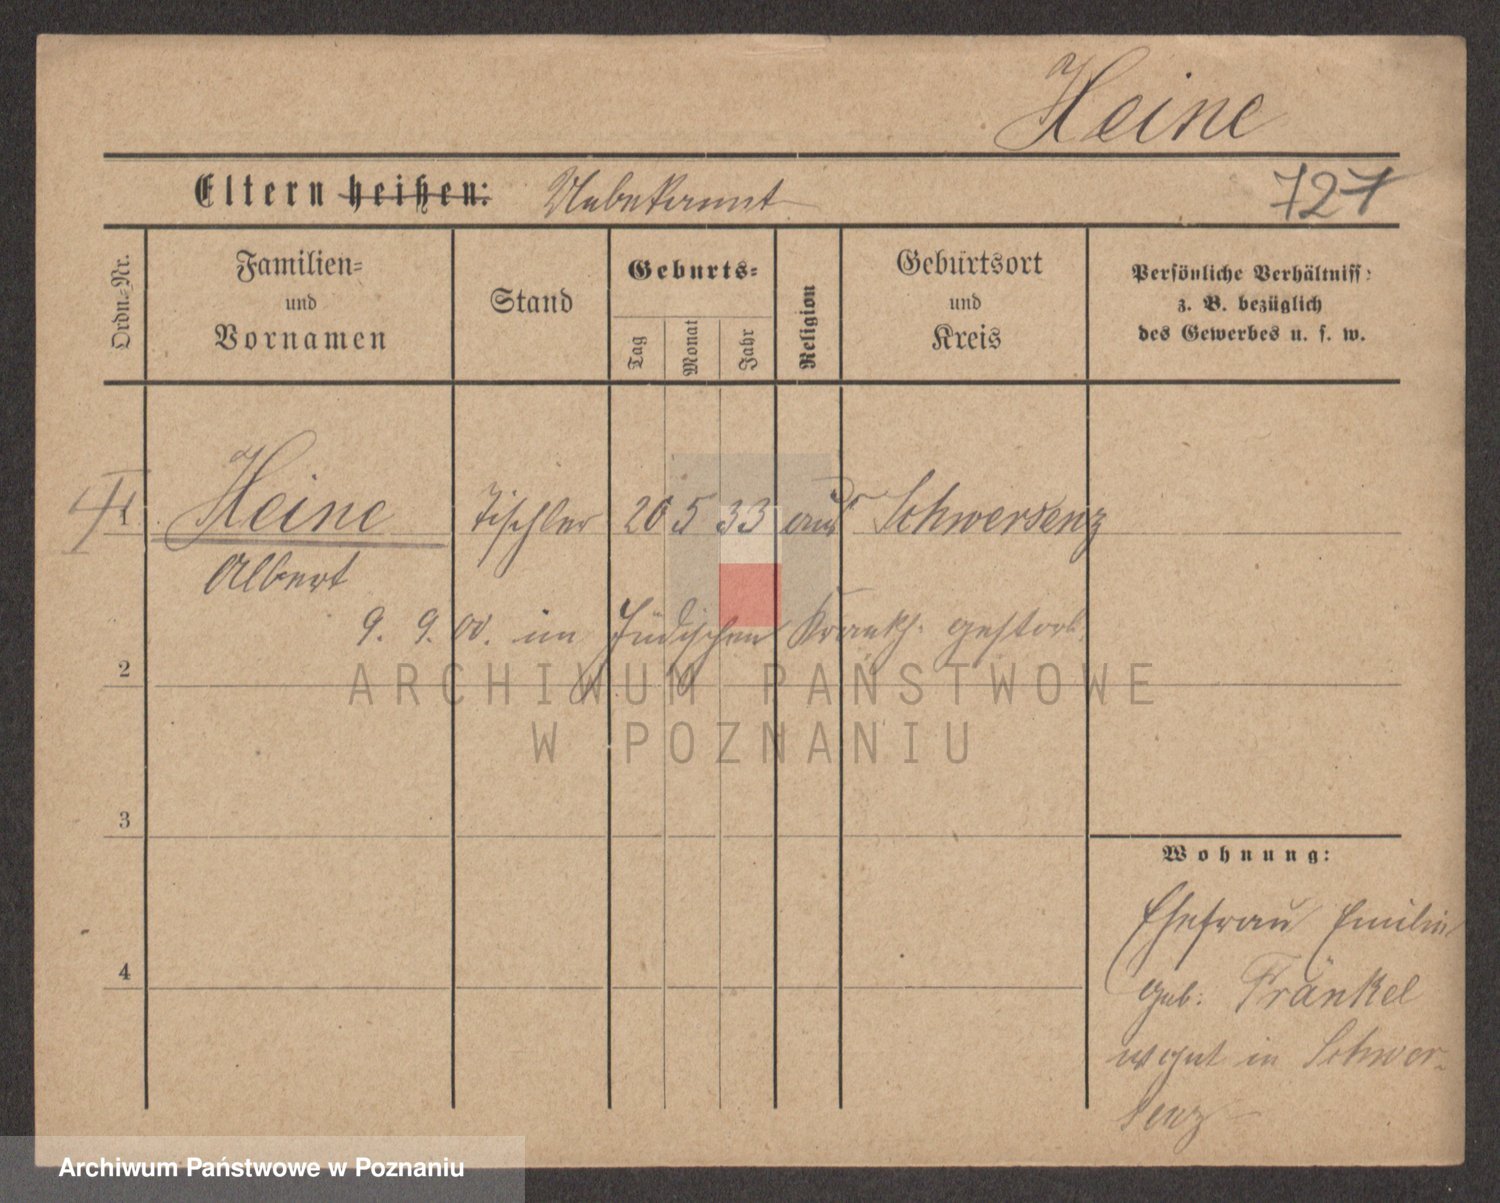 Heine
Eltern heißen: Unbekannt
727
Ordn.-Nr.
Familien-
und
Vornamen
Stand
Geburts-
Tag
Monat
Jahr
Religion
Geburtsort
und
Kreis
Persönliche Verhältniss:
z. B. bezüglich
des Gewerbes u. s. w.
1 Heine Tischler 20 5 33 aus Schwersenz
Albert
9. 9. 00. im Jüdischen Krankh. gestorb.
2
ARCHIWUM PAŃSTWOWE
W POZNANIU
3
Wohnung:
Ehefrau Emilie
4
geb. Fränkel
wohnt in Schwer-
senz
Archiwum Państwowe w Poznaniu